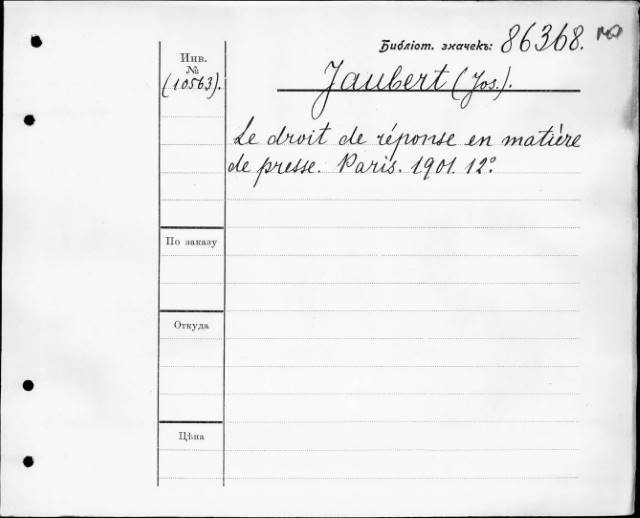 Библіот. значекъ: 86368.
Инв.
№
(10563).
Jaubert (Jos.).
Le droit de réponse en matière
de presse. Paris. 1901. 12º
По заказу
Откуда
Цѣна